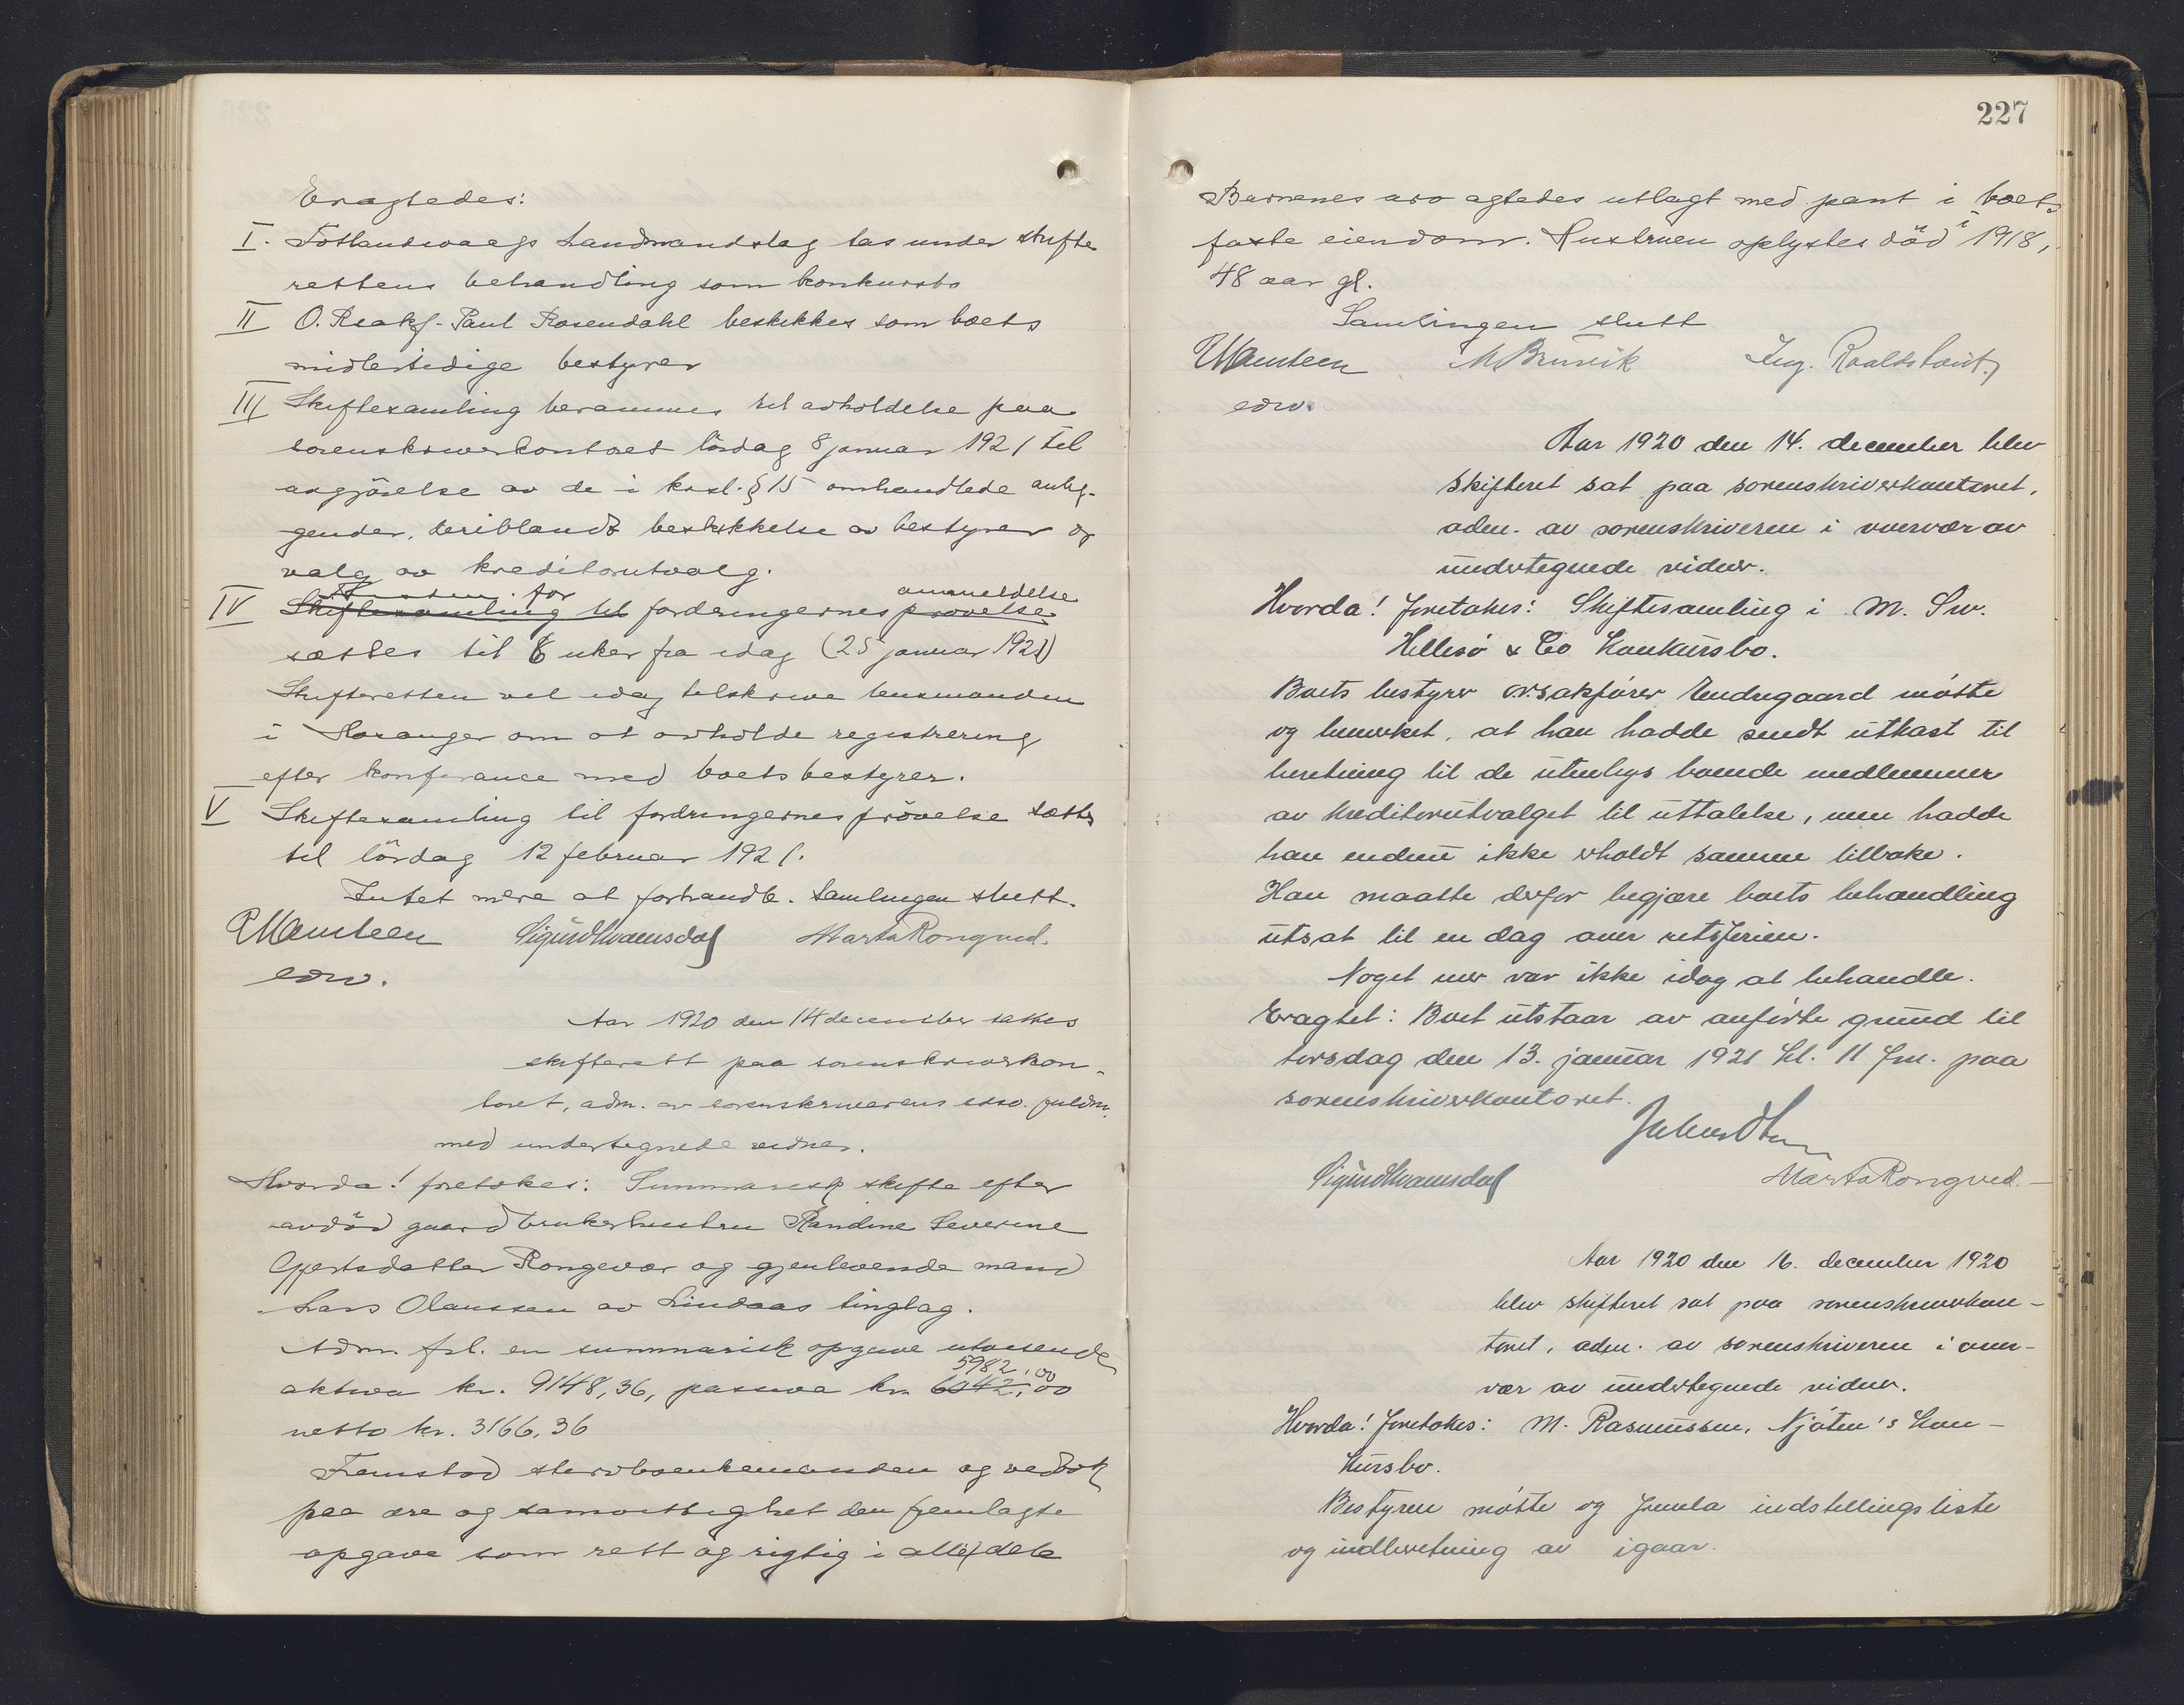 Eragtedes:
I. Fotlandsvaags Landmandslag tas under skifte
rettens behandling som konkursbo
II O. Rsakf. Paul Rosendahl beskikkes som boets
midlertidige bestyrer
III Skiftesamling berammes til avholdelse paa
sorenskriverkontoret lördag 8 januar 1921 til
avgjörelse av de i kosl. § 15 omhandlede anlig-
gender, deriblandt beskikkelse av bestyrer og
valg av kreditorutvalg.
for anmeldelse
IV Skiftesamling til fordringernes prøvelse
sættes til 6 uker fra idag (25 januar 1921)
Skifteretten vil idag tilskrive lensmanden
i Hosanger om at avholde registrering
efter konferance med boets bestyrer.
V Skiftesamling til fordringernes prövelse sættes
til lördag 12 februar 1921.
Intet mere at forhandle. Samlingen slutt.
Sigurd Kvamsdal Marta Rongved.
edv.
Aar 1920 den 14 december sattes
skifterett paa sorenskriverkon-
toret, adm. av sorenskriverens edsv. fuldm.
med undertegnede vidner.
Hvorda! foretokes: Summarisk skifte efter
avdöd gaardbrukerhustru Randine Severine
Gjertsdatter Rongevær og gjenlevende mand
Lars Olaussen av Lindaas tinglag.
Adm. frl. en summarisk opgave utvisende
5982,00
aktiva kr. 9148,36, passiva kr. 6342,00
netto kr. 3166,36
Fremstod stervboenkemanden og vedtok
paa ære og samvittighet den fremlagte
opgave som rett og rigtig i alle dele
227
Barnenes arv agtedes utlagt med pant i boets
faste eiendom. Hustruen oplystes död i 1918,
48 aar gl.
Samlingen slutt
M Brunvik Ing.
edv.
Aar 1920 den 14. december blev
skifteret sat paa sorenskriverkontoret,
adm. av sorenskriveren i overvær av
undertegnede vidner.
Hvorda! foretokes: Skiftesamling i M. Sw.
Hellesö & Co Konkursbo.
Boets bestyrer o.r.sakfører Endregaard møtte
og bemerket, at han hadde sendt utkast til
beretning til de utenbys boende medlemmer
av kreditorutvalget til uttalelse, men hadde
han endnu ikke erholdt samme tilbake.
Han maatte derfor begjære boets behandling
utsat til en dag over retsferien.
Noget mer var ikke idag at behandle.
Eragtet: Boet utstaar av anførte grund til
torsdag den 13. januar 1921 kl. 11 fm. paa
sorenskriverkontoret.
Sigurd Kvamsdal Marta Rongved.
Aar 1920 den 16. december 1920
blev skifteret sat paa sorenskriverkon-
toret, adm. av sorenskriveren i over-
vær av undertegnede vidner.
Hvorda! foretokes: M. Rasmussen, Njøten's Kon-
kursbo.
Bestyren møtte og fremla indstillingsliste
og indberetning av igaar.